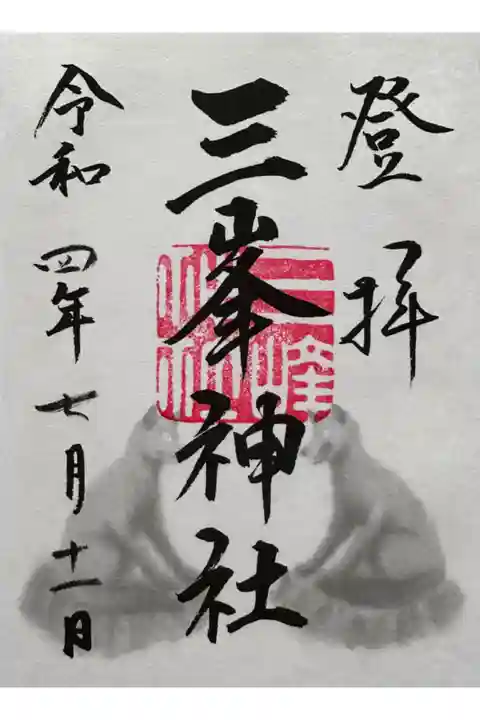 登拝
三峯神社
令和四年七月十一日